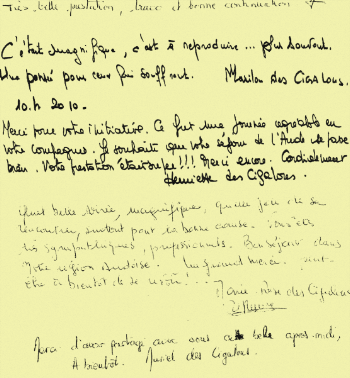 Très belle prestation, bravo et bonne continuation
C'était magnifique, c'est à reproduire ... plus souvent.
Une pensée pour ceux qui souffrent. Marilou des Cigalous.
10.4 2010.
Merci pour votre initiative. Ce fut une journée agréable en
votre compagnie. Je souhaite que votre séjour de l'Aude se passe
bien. Votre prestation était super!!! Merci encore. Cordialement
Henriette des Cigalous.
Quel belle soirée, magnifique, quelle joie de se
rencontrer, surtout pour la bonne cause.
très sympathiques, professionnels. Bon séjour dans
Notre région audoise. Un grand merci.
être à bientôt de se revoir...
Marie-Rose des Cigalous
Merci d'avoir partagé avec vous belle après-midi,
A bientôt. Muriel des Cigalous.